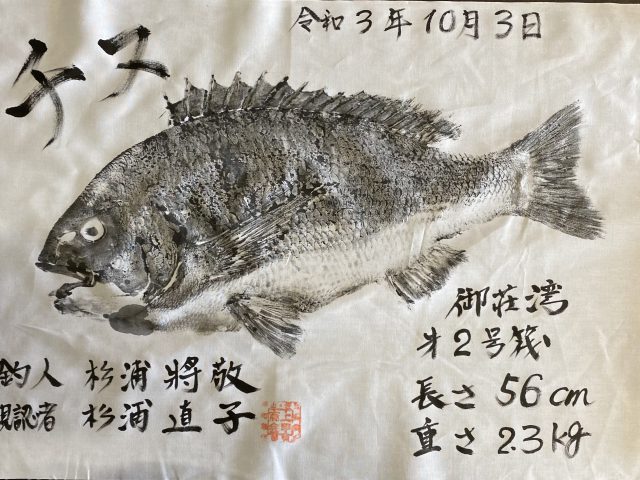 令和3年10月3日
チヌ
御荘湾
才2号筏
長さ 56cm
重さ 2.3kg
釣人 杉浦 將敬
現認者 杉浦 直子